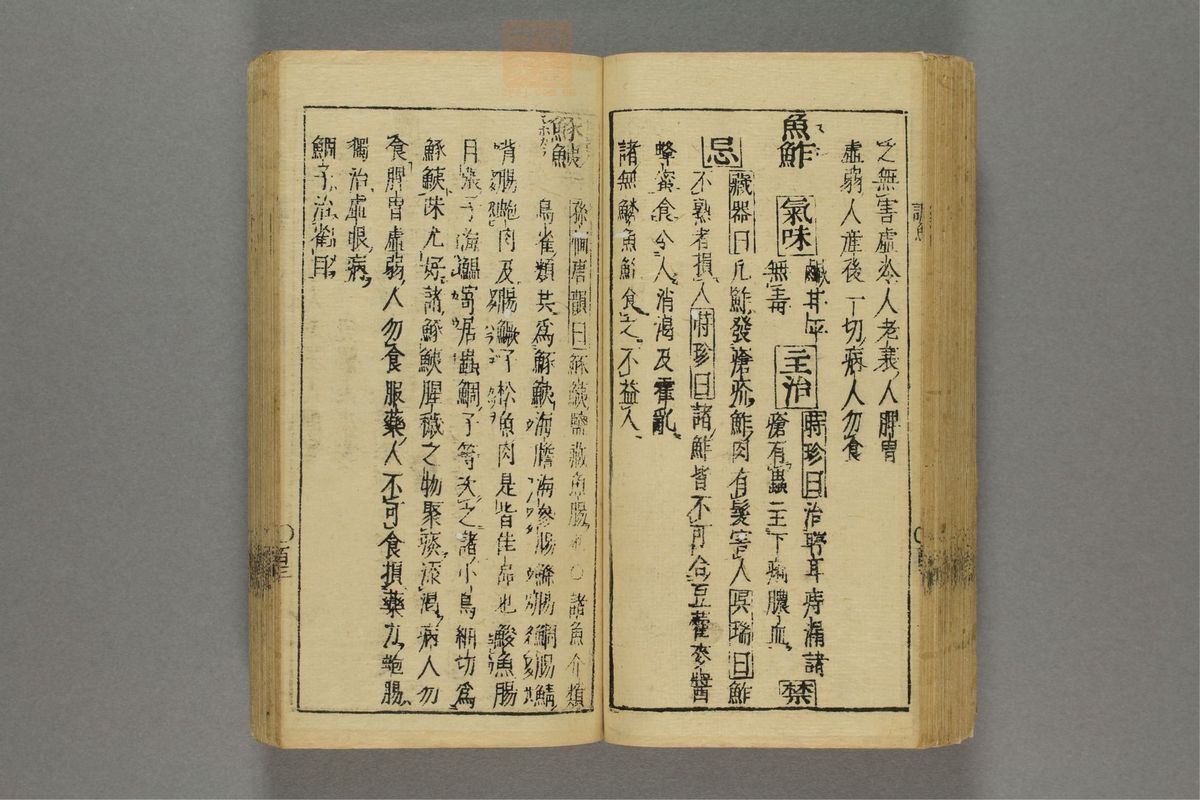 之無害虚冷人老衰人脾胃
虚弱人産後一切病人勿食
魚鮓 氣味 鹹甘平
無毒 主治 時珍曰治聤耳痔漏諸
瘡有蟲主下痢膿血 禁
忌 藏器曰凡鮓發瘡疥鮓肉有髮害人㫤瑞曰鮓
不熟者損人時珍曰諸鮓皆不可合豆藿麥醬
蜂蜜食令人消渇及霍亂
諸無鱗魚鮓食之不益人
鮧 孫愐唐韻曰鮧鹽藏魚腸也〇諸魚介類
鳥雀類共爲海膽海參腸腸鯛腸鯖
腸鮑肉及腸鱖子松魚肉是皆佳品也鮻魚腸
子海寄居蟲鯛子等次之諸小鳥細切爲
味尤好諸腥穢之物聚痰添渇病人勿
食脾胃虚弱人勿食服藥人不可食損藥力鮑腸
獨治虚眼病
鯛子治雀目